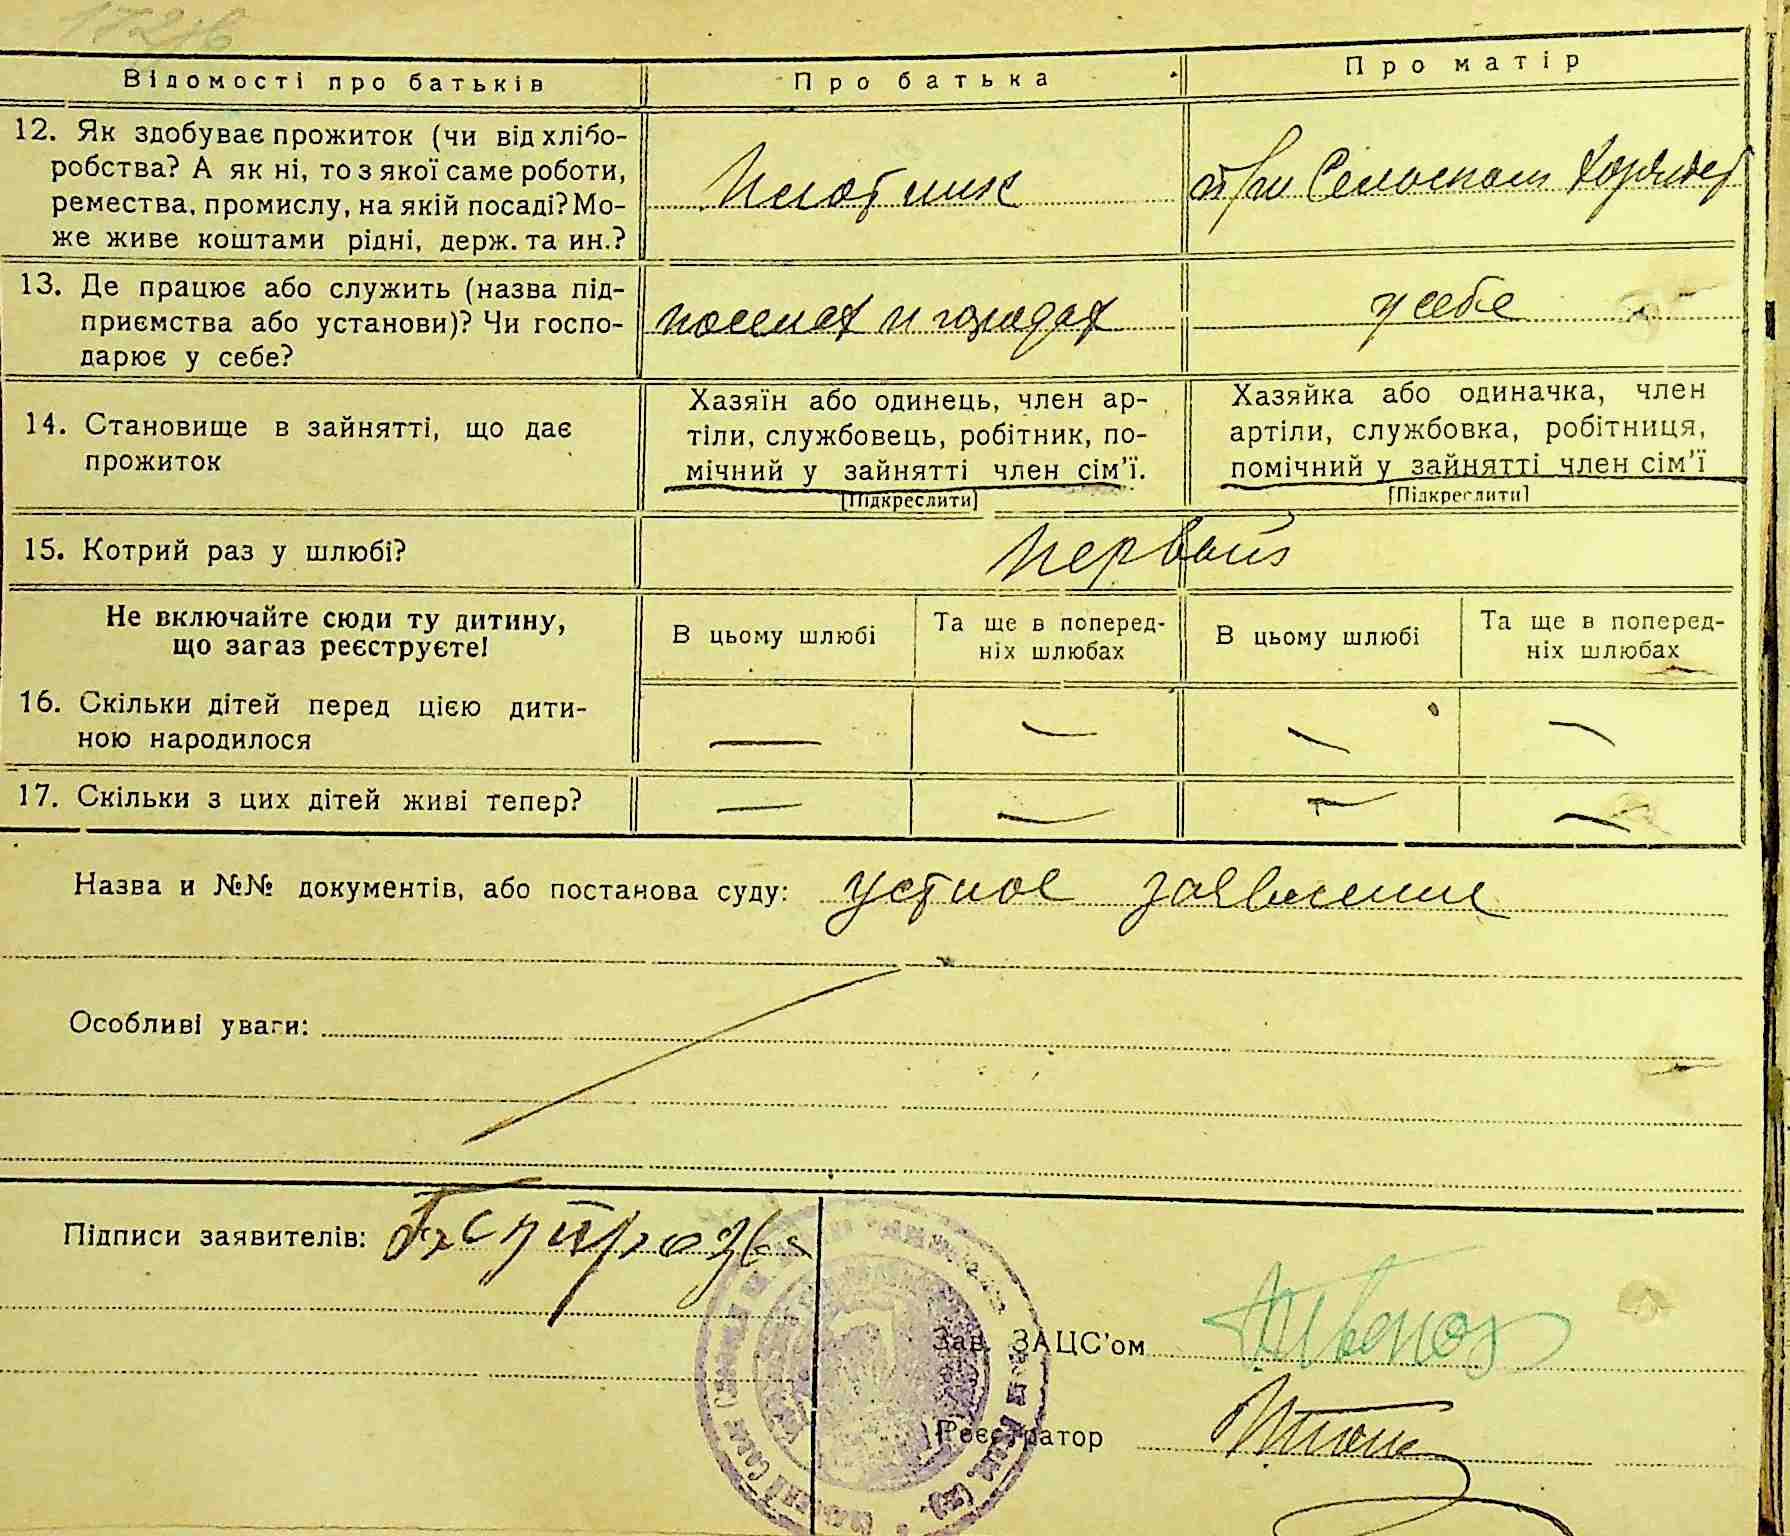 Відомості про батьків
Про батька
Про матір
12. Як здобуває прожиток (чи від хлібо-
робства? А як ні, то з якої саме роботи,
ремества, промислу, на якій посаді? Мо-
же живе коштами рідні, держ. та ин.?
Плотник
при Сельском
13. Де працює або служить (назва під-
приємства або установи)? Чи госпо-
дарює у себе?
по селах и городах
у себе
14. Становище в зайнятті, що дає
прожиток
Хазяїн або одинець, член ар-
тіли, службовець, робітник, по-
мічний у зайнятті член сім’ї.
[Підкреслити]
Хазяйка або одиначка, член
артіли, службовка, робітниця,
помічний у зайнятті член сім’ї
[Підкреслити]
15. Котрий раз у шлюбі?
первый
Не включайте сюди ту дитину,
що загаз реєструєте!
В цьому шлюбі
Та ще в поперед-
ніх шлюбах
В цьому шлюбі
Та ще в поперед-
ніх шлюбах
16. Скільки дітей перед цією дити-
ною народилося
— — — —
17. Скільки з цих дітей живі тепер?
— — — —
Назва и №№ документів, або постанова суду: устное заявление
Особливі уваги:
Підписи заявителів:
Зав. ЗАЦС’ом
Реєстратор